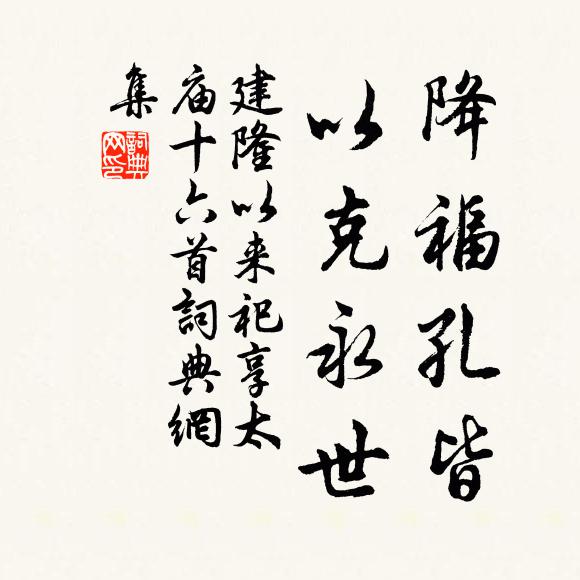 降福孔皆
以克永世
建隆以来祀享太
庙十六首詞典網
集
詞典
网印